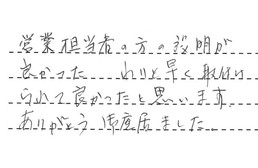 営業担当者の方の説明が
良かった わりと早く取付け
られて良かったと思います。
ありがとう御座居ました。